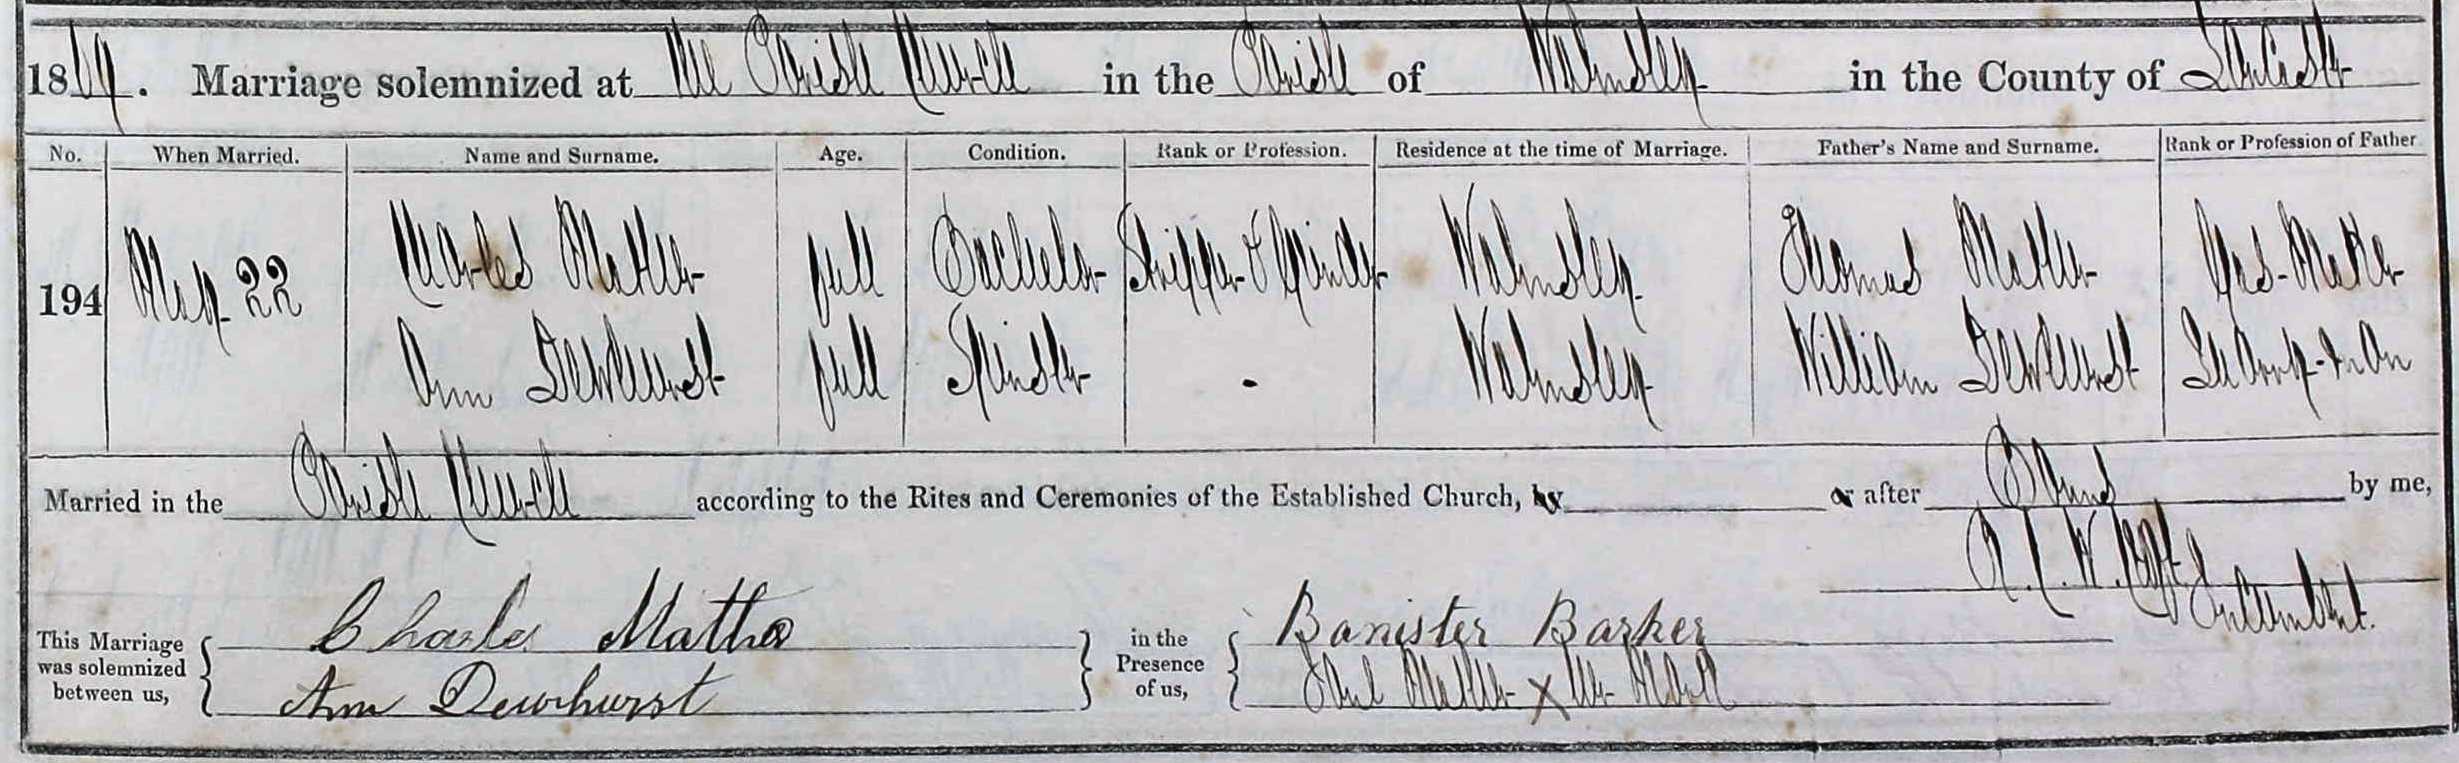 1869. Marriage solemnized at The Parish Church in the Parish of Walmsley in the County of Lancaster
No. When Married. Name and Surname. Age. Condition. Rank or Profession. Residence at the time of Marriage. Father's Name and Surname. Rank or Profession of Father
194 May 22 Charles Mather full Bachelor Stripper & Grinder Walmsley Thomas Mather Gas-Maker
Ann Dewhurst full Spinster - Walmsley William Dewhurst Quarry-man
Married in the Parish Church according to the Rites and Ceremonies of the Established Church, by or after Banns by me,
Incumbent.
This Marriage was solemnized between us, Charles Mather in the Presence of us, Banister Barker
Ann Dewhurst Jane Mather X her Mark